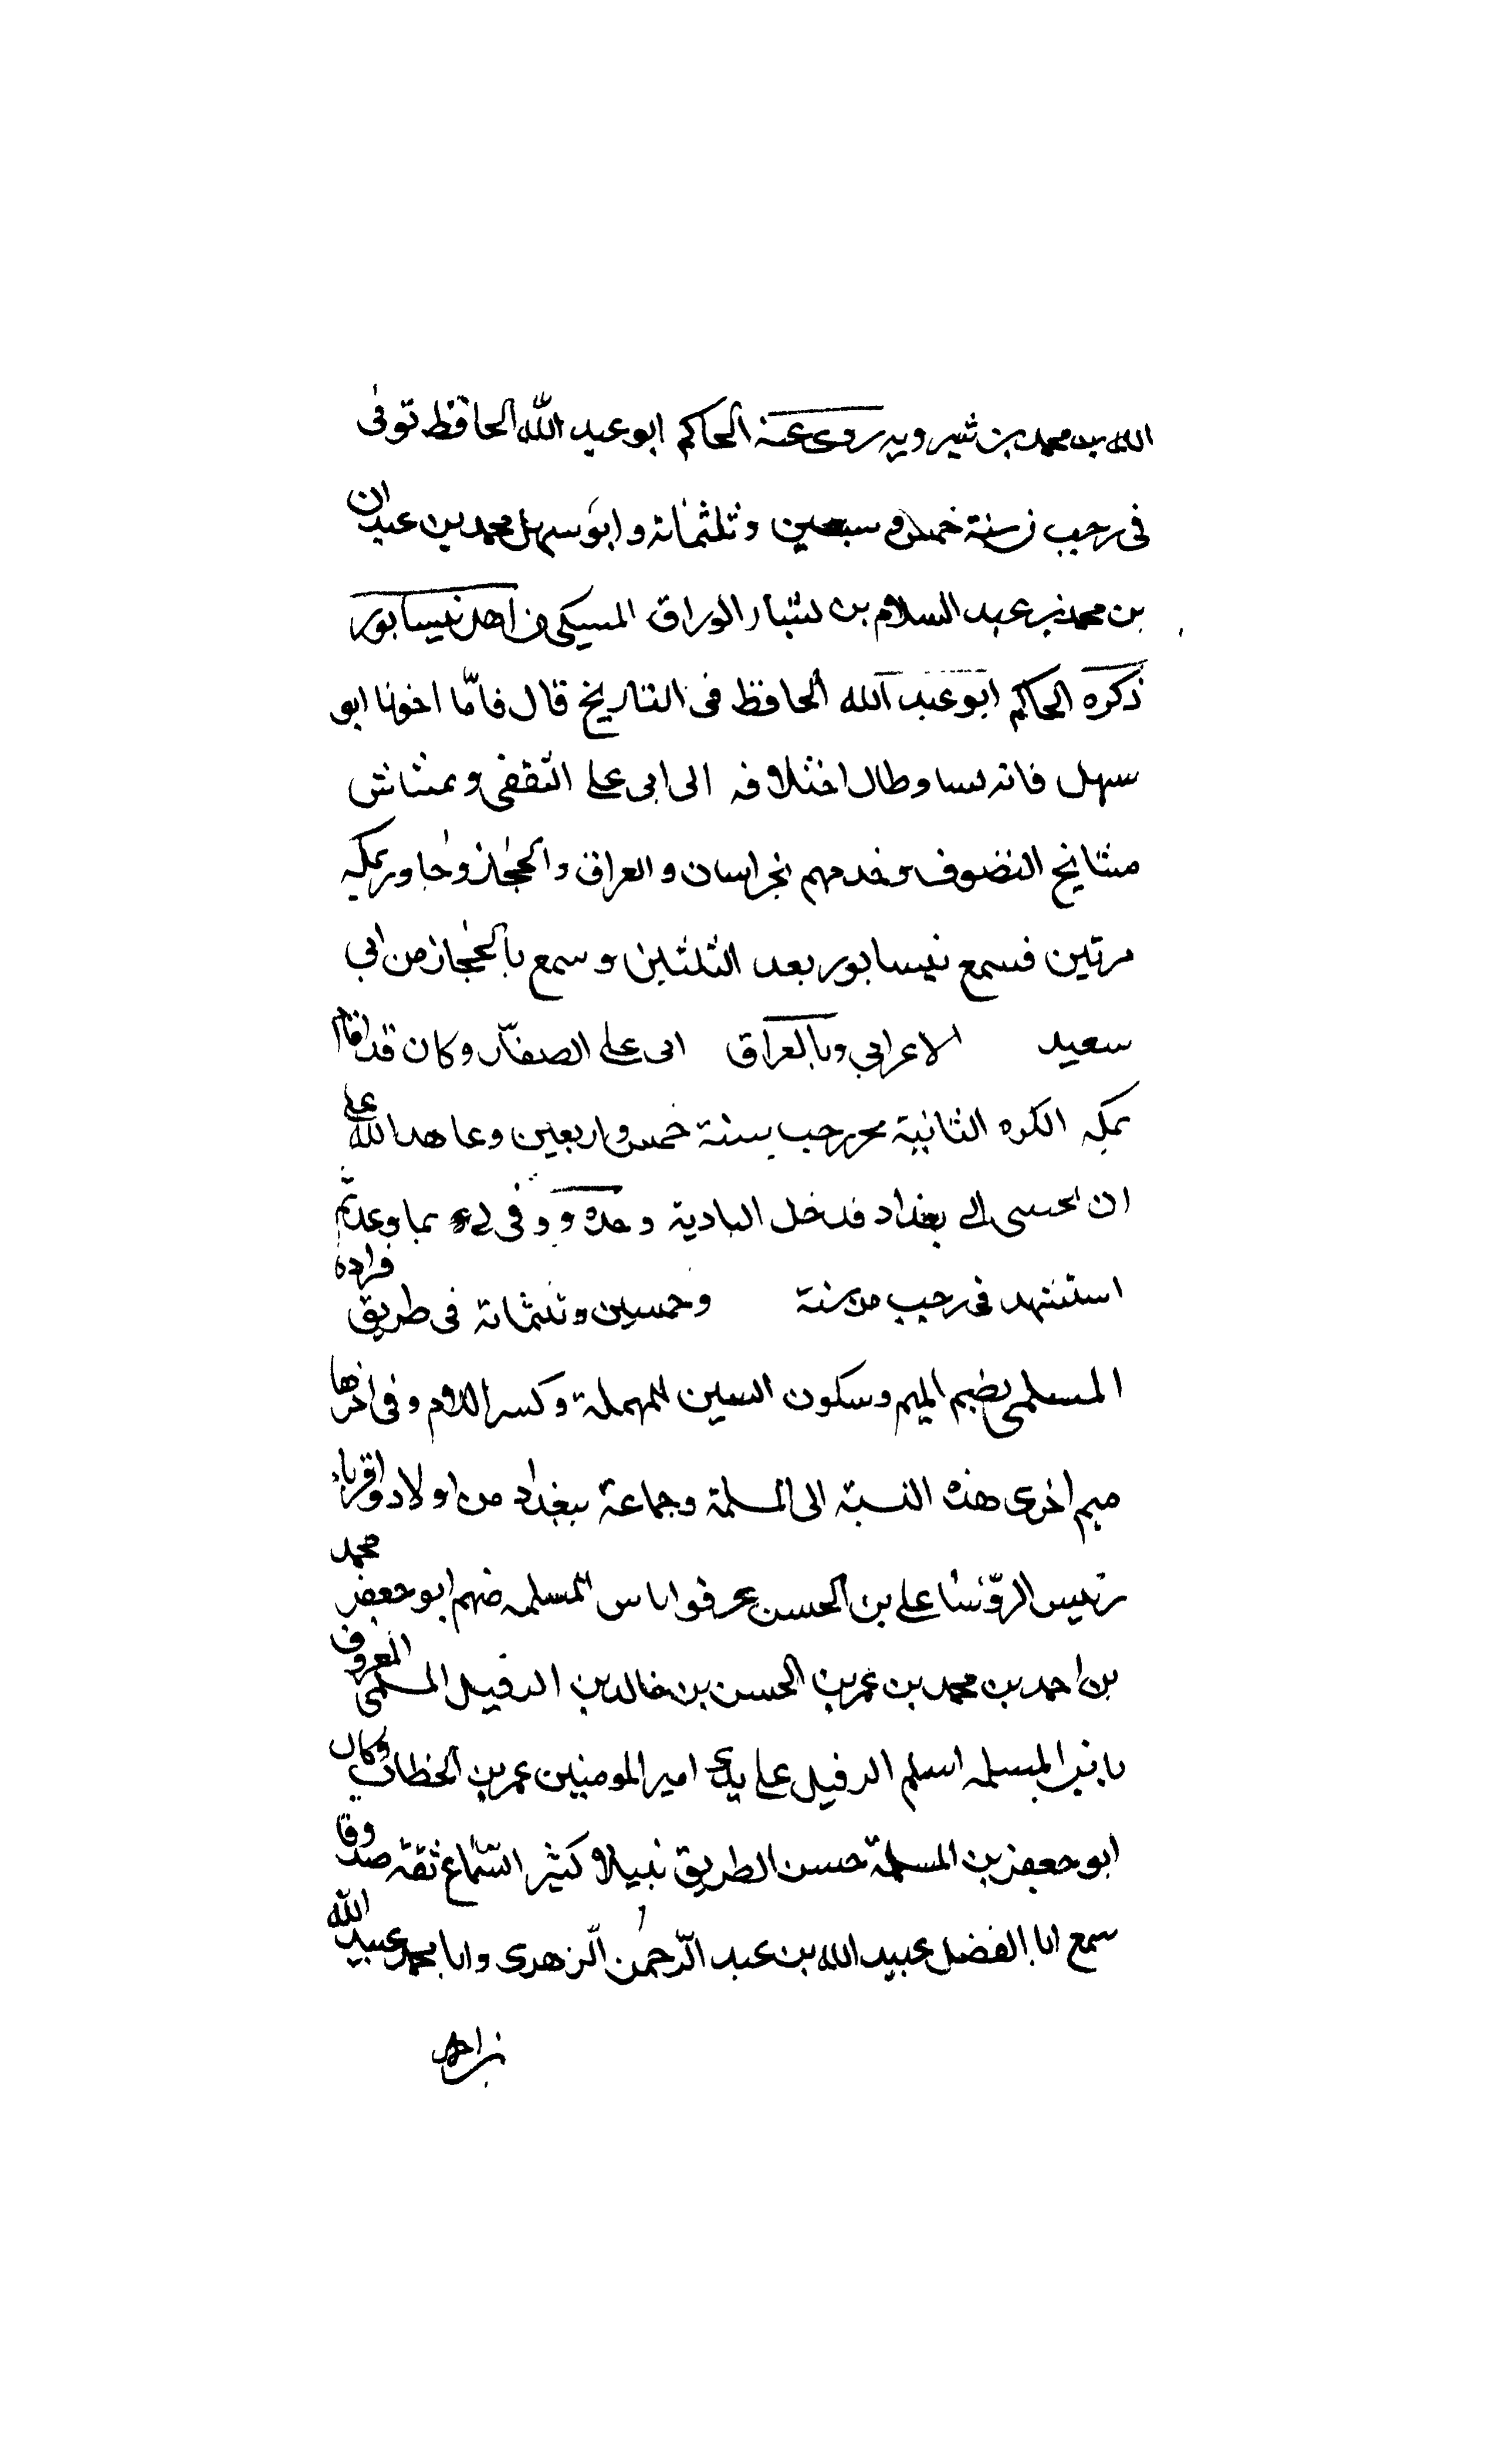 الله بن محمد بن شيرويه روى عنه الحاكم ابو عبد الله الحافظ توفى
فى رجب سنة خمس و سبعين وثلثمائة و ابو سهل محمد بن عبدان
بن محمد بن عبد السلام بن الوراق المسيكى من اهل نيسابور
ذكره الحاكم ابو عبد الله الحافظ فى التاريخ قال فامّا اخونا ابو
سهل فانه وطال اختلافه الى ابى على الثقفى و
مشايخ التصوف وخدمهم بخراسان و العراق والحجاز وجاور بمكه
مرتين فسمع نيسابور بعد الثلثين و سمع بالحجاز من ابى
سعيد الاعرابي وبالعراق ابى على الصفّار وكان قد اقام
بمكه الكره الثانية رجب سنة خمس واربعين وعاهد الله على
ان الى بغداد فدخل البادية وحده و وفى بما وعد ثم
استشهد فى رجب من سنة وخمسين وثلثمائة فى طريق فراده
المسلمى بضم الميم وسكون السين المهملة وكسر اللام وفى اخرها
ميم اخرى هذه النسبة الى المسلمة وجماعة ببغداد من اولاد واقرباء
رئيس الرؤسا على بن الحسن عرفوا المسلمه منهم ابو جعفر محمد
بن احمد بن محمد بن عمر بن الحسن بن خالد بن الرفيل المسلمى المعروف
بابن المسلمه اسلم الرفيل على يدى امير المومنين عمر بن الخطاب وكان
ابو جعفر بن المسلمة حسن الطريق نبيلا كثير السّماع ثقة صدوقا
سمع ابا الفضل عبيد الله بن عبد الرّحمن الزهرى وابا محمد عبيد الله
بن احمد